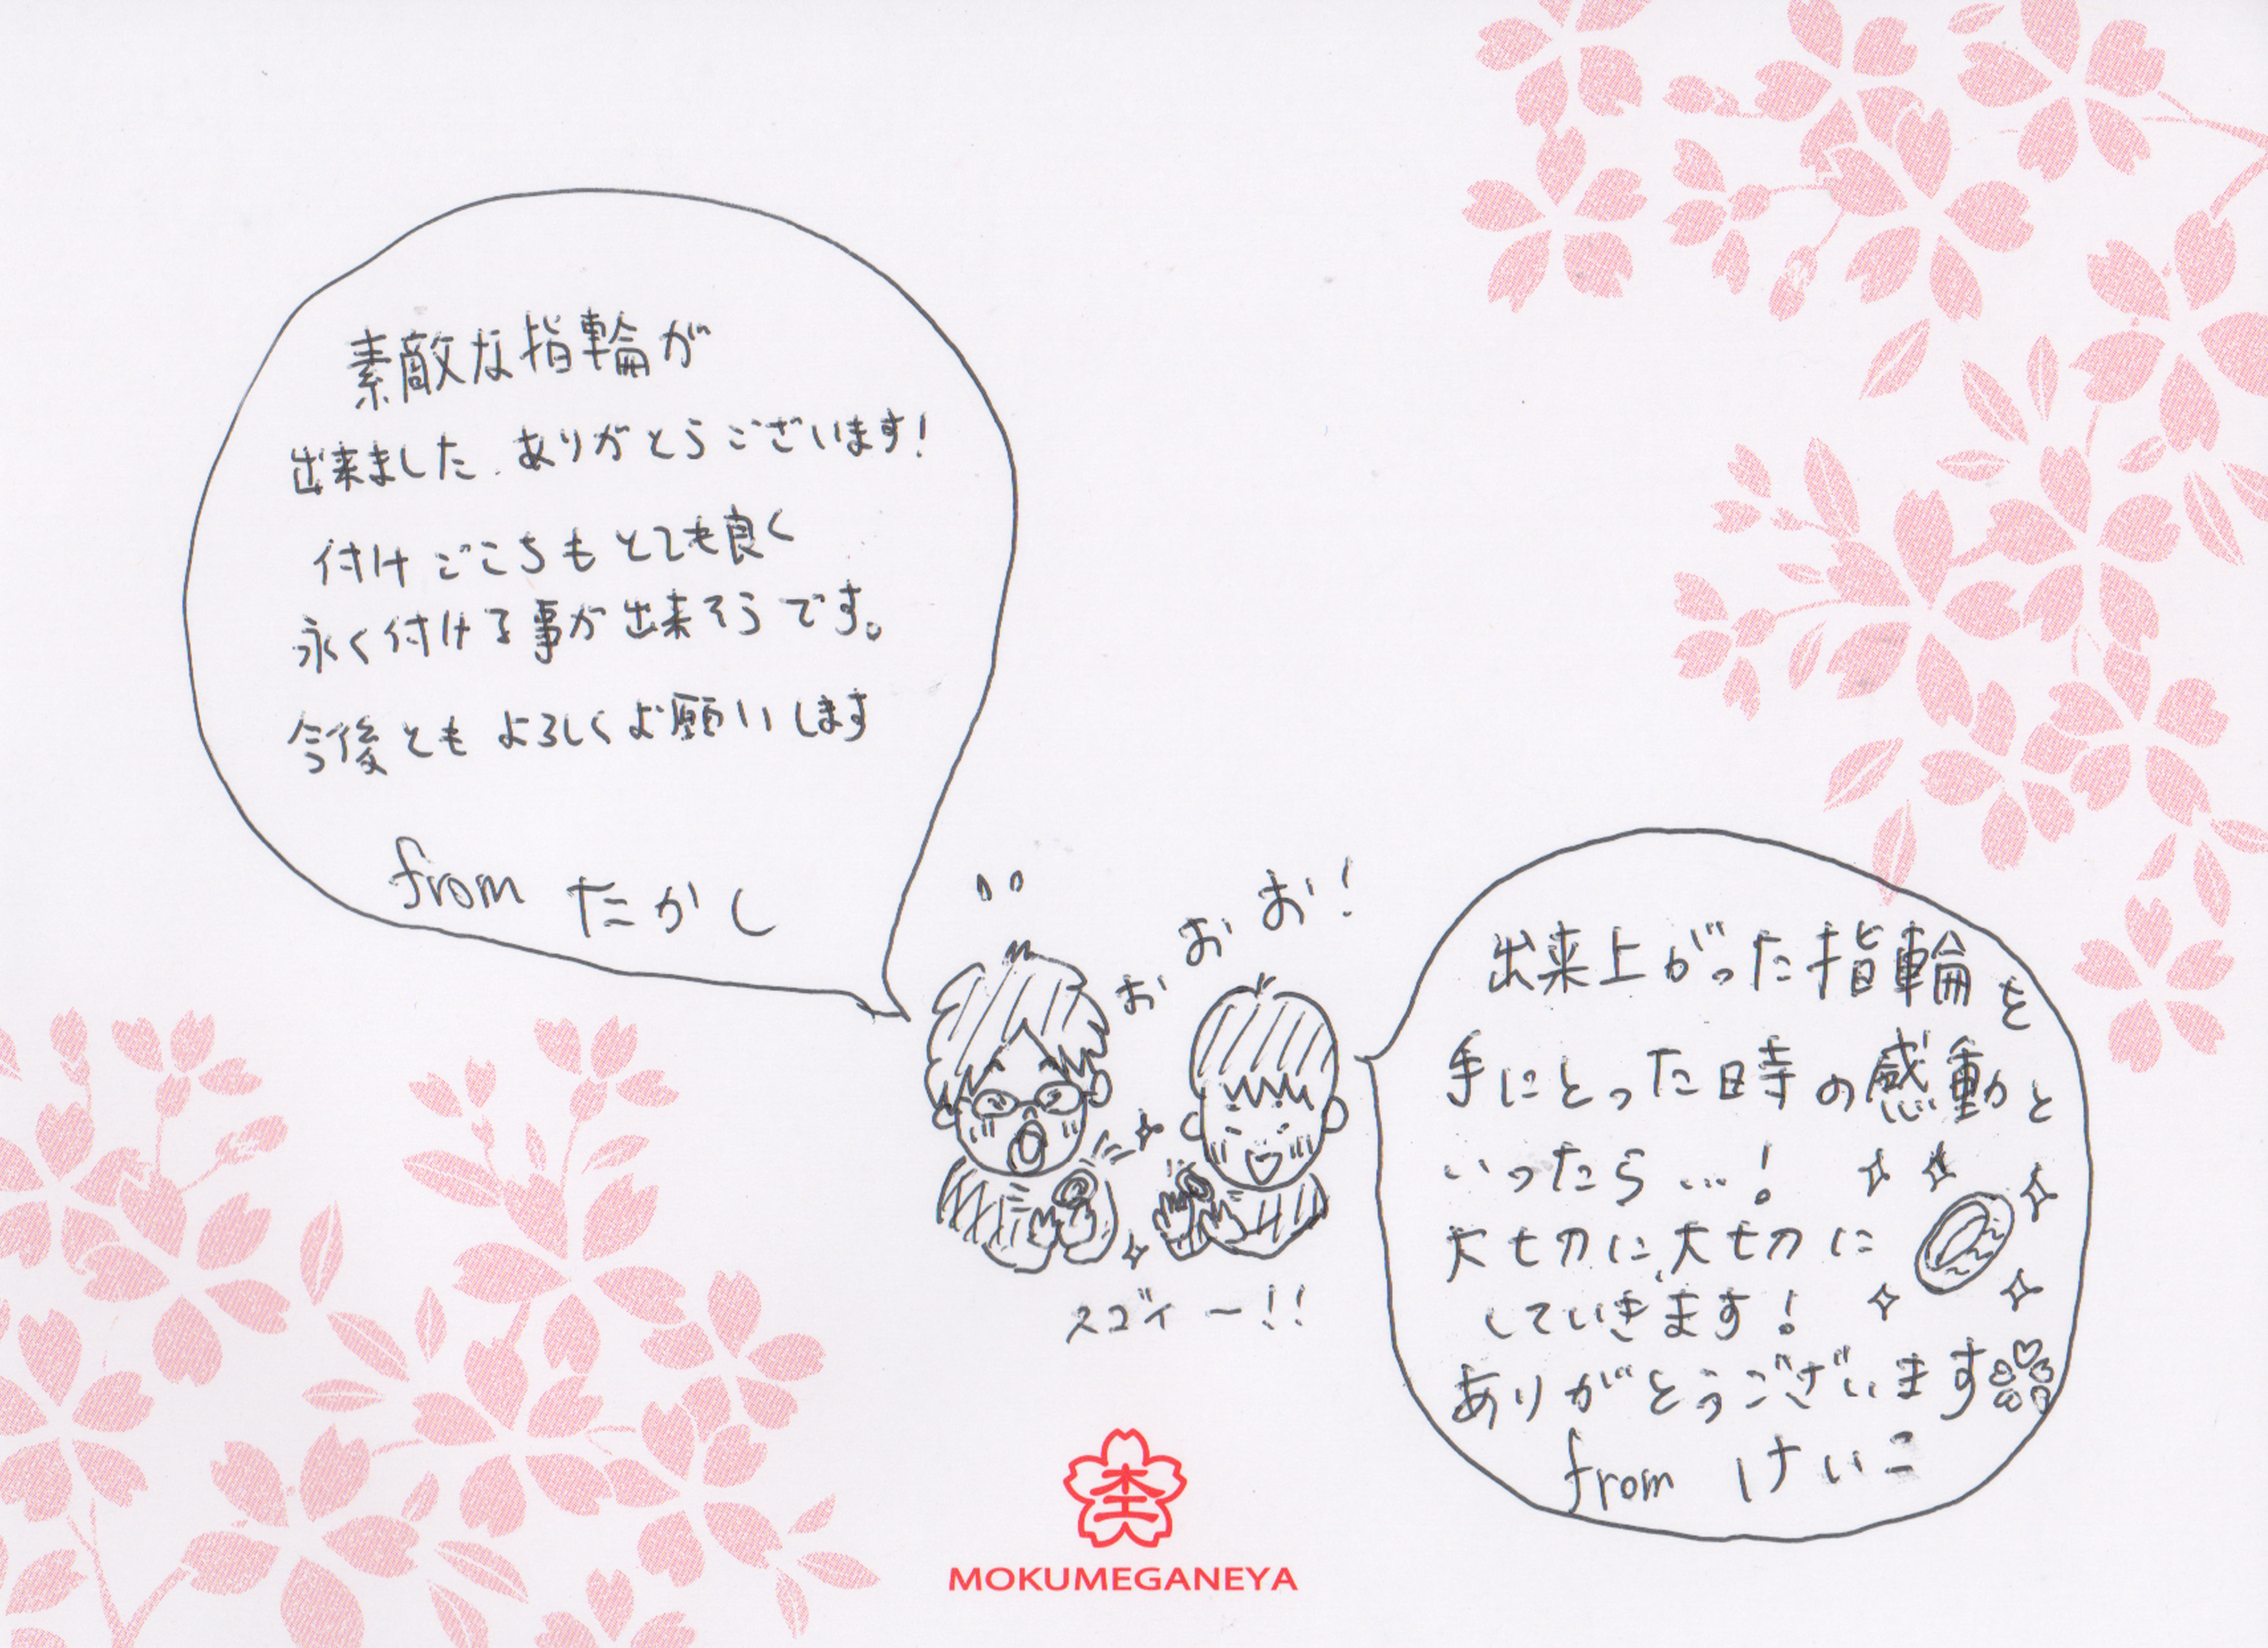 素敵な指輪が
出来ました. ありがとうございます!
付けごこちもとても良く
永く付ける事が出来そうです。
今後ともよろしくお願いします
from たかし
おおお!
スゴイー!!
出来上がった指輪を
手にとった時の感動と
いったら…!
大切に、大切に
していきます!
ありがとうございます
from けいこ
杢
MOKUMEGANEYA